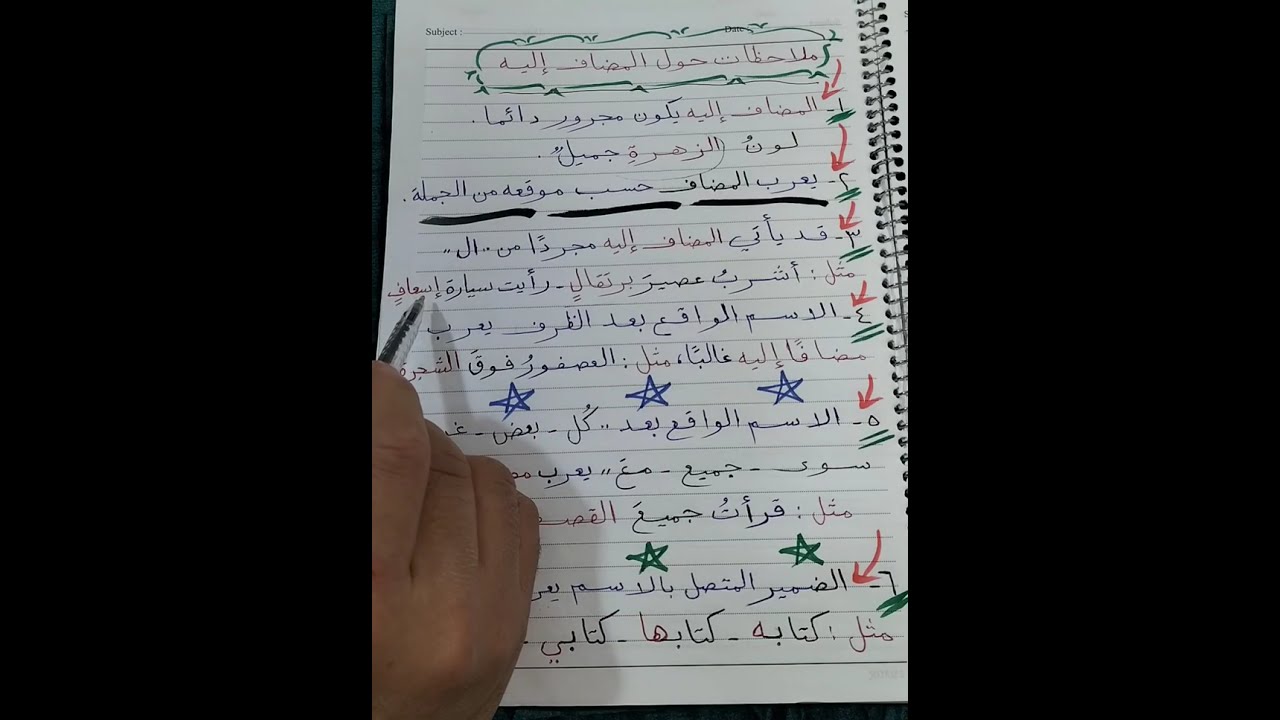 Subject :
Date
ملاحظات حول المضاف إليه
١- المضاف إليه يكون مجرور دائما.
لونُ الزهرةِ جميلٌ.
٢- يعرب المضاف حسب موقعه من الجملة.
٣- قد يأتي المضاف إليه مجردًا من ,, ال ,,
مثل : أشربُ عصيرَ برتقالٍ - رأيت سيارة إسعافٍ
٤- الاسم الواقع بعد الظرف يعرب
مضافًا إليه غالبًا، مثل : العصفورُ فوقَ الشجرة
٥- الاسم الواقع بعد ,, كُل - بعض -
سوى - جميع - معَ ,, يعرب
مثل : قرأتُ جميعَ
٦- الضمير المتصل بالاسم
مثل : كتابه - كتابها - كتابي -